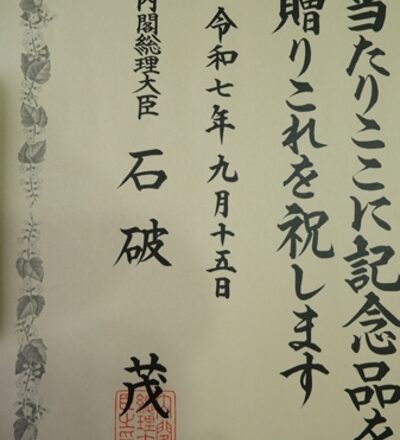 当たりここに記念品を
贈りこれを祝します
令和七年九月十五日
内閣総理大臣
石破
茂